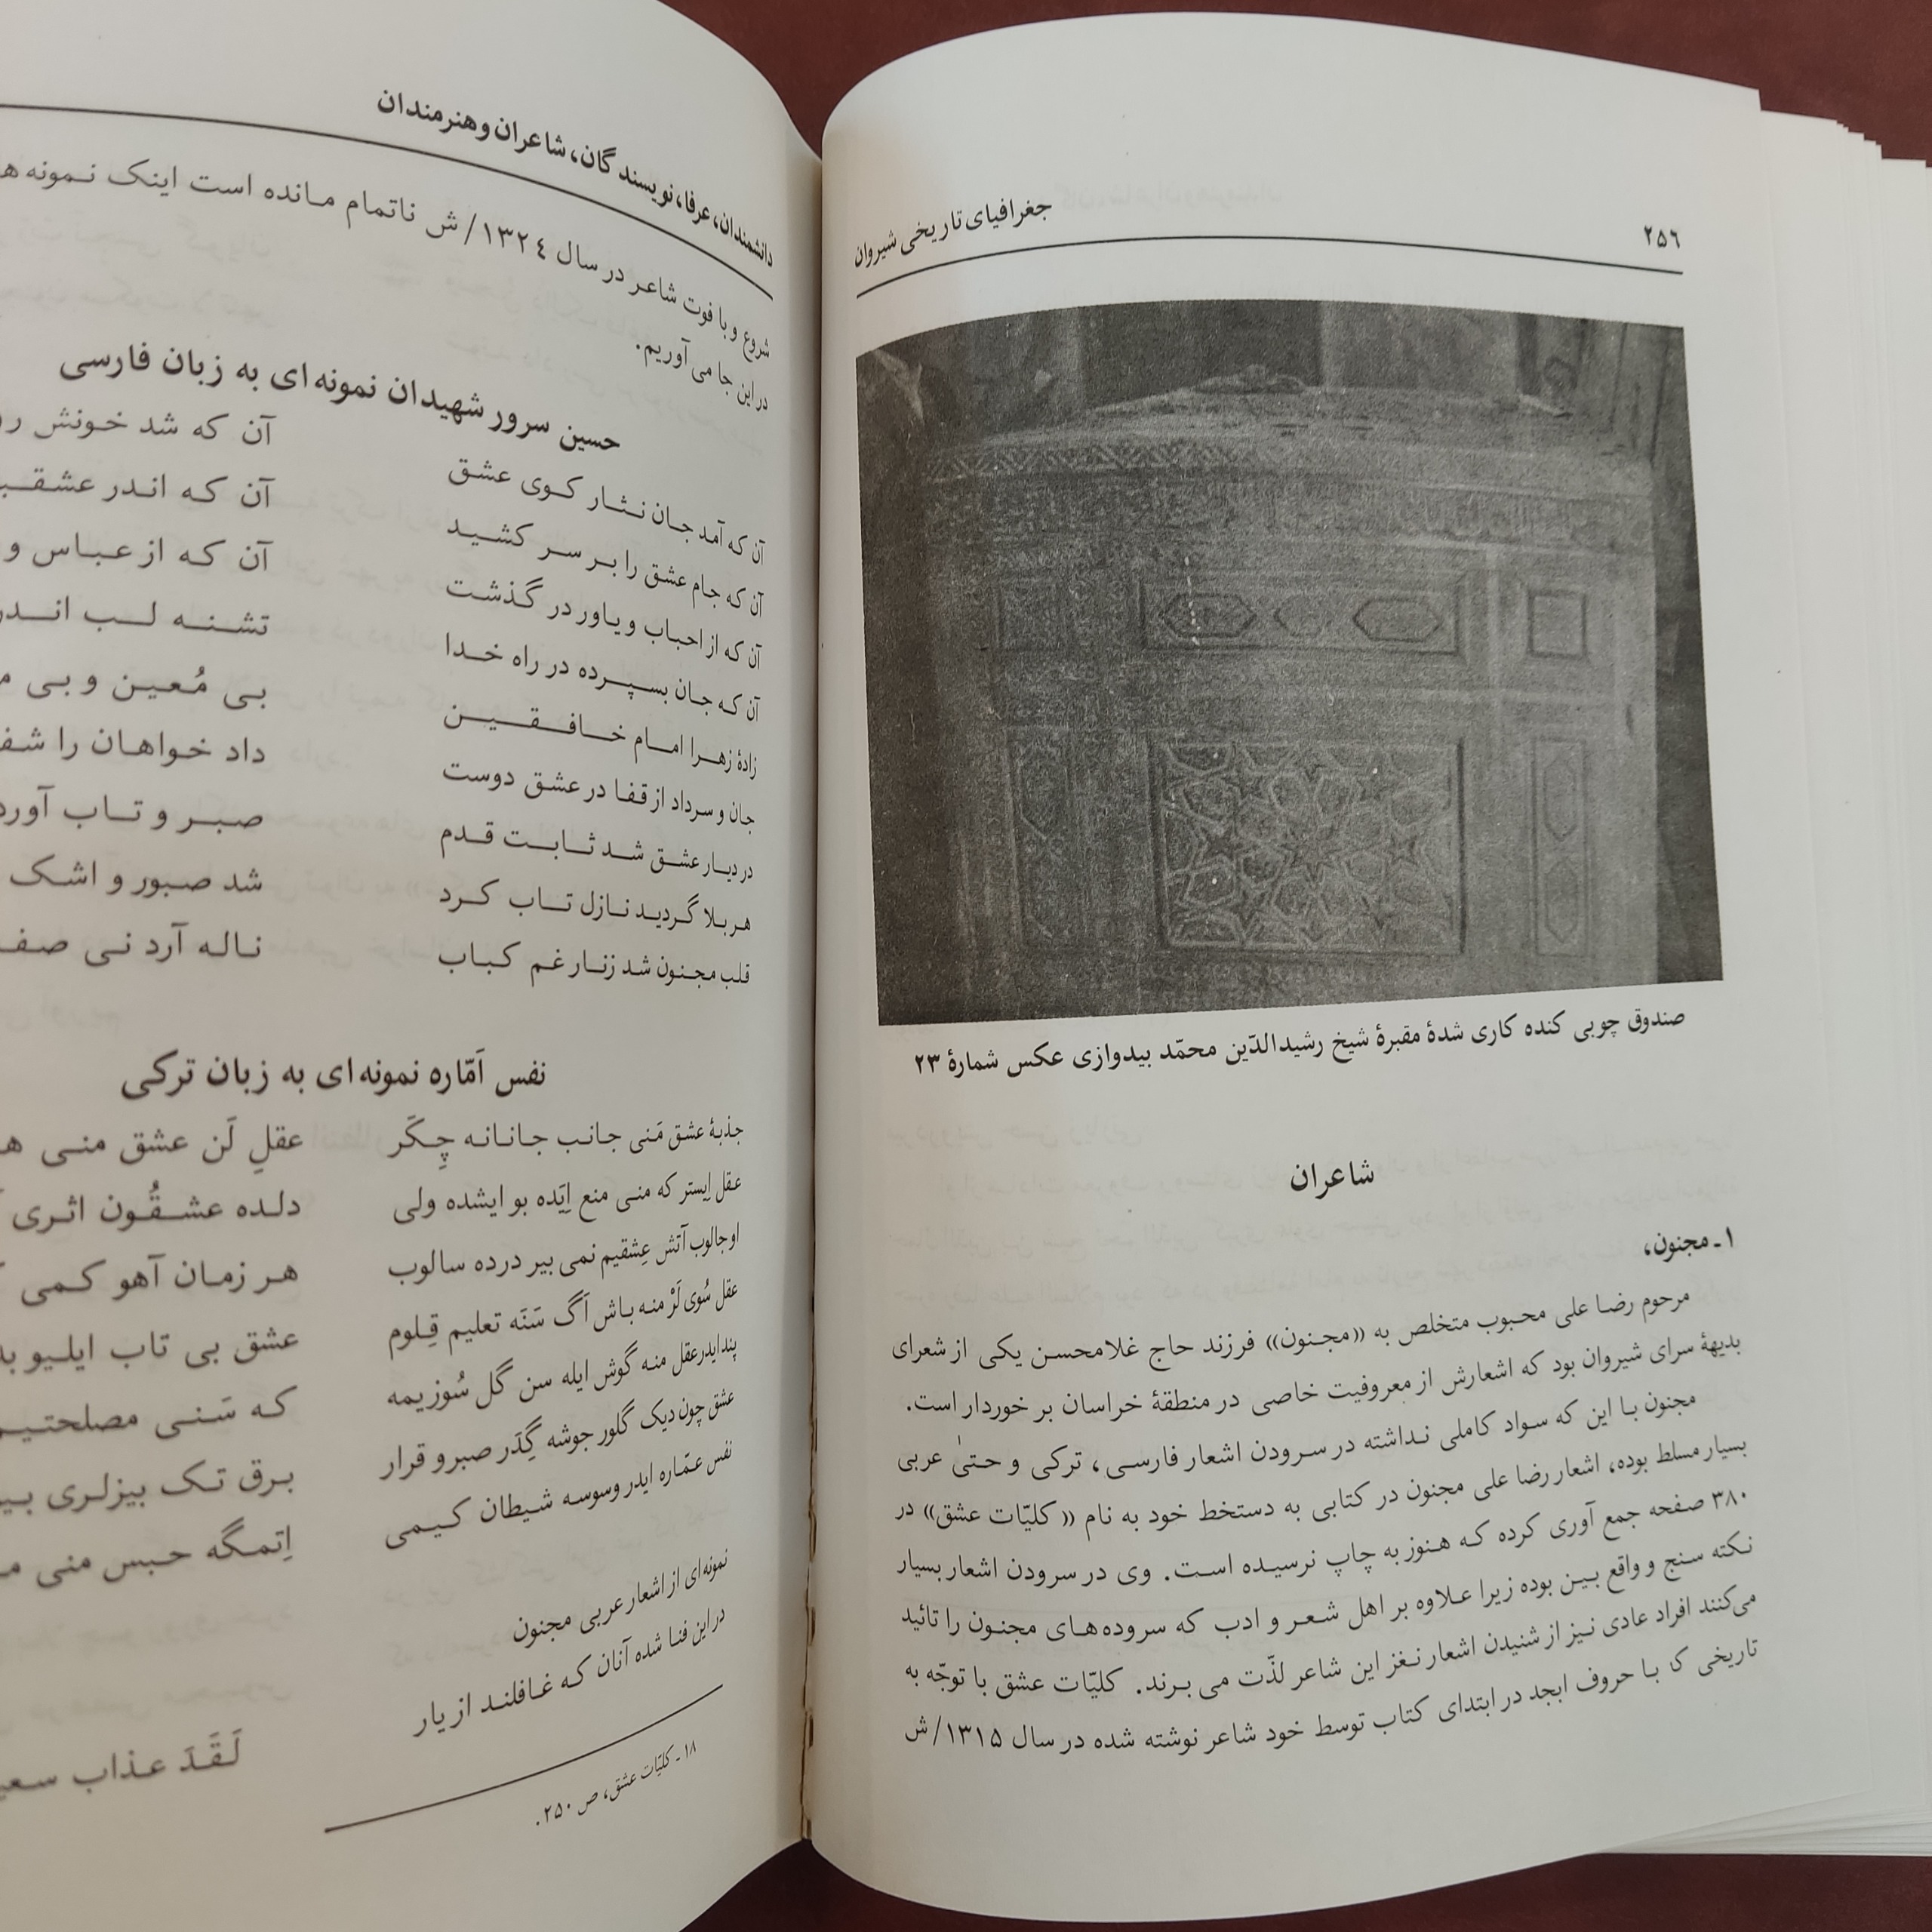 ۲۵۶
جغرافیای تاریخی شیروان
صندوق چوبی کنده کاری شدهٔ مقبرهٔ شیخ رشیدالدّین محمّد بیدوازی عکس شمارهٔ ۲۳
شاعران
۱ـ مجنون،
مرحوم رضا علی محبوب متخلص به «مجنون» فرزند حاج غلامحسن یکی از شعرای
بدیههٔ سرای شیروان بود که اشعارش از معروفیت خاصی در منطقهٔ خراسان بر خوردار است.
مجنون با این که سواد کاملی نداشته در سرودن اشعار فارسی، ترکی و حتیٰ عربی
بسیار مسلط بوده، اشعار رضا علی مجنون در کتابی به دستخط خود به نام «کلیّات عشق» در
۳۸۰ صفحه جمع آوری کرده که هنوز به چاپ نرسیده است. وی در سرودن اشعار بسیار
نکته سنج و واقع بین بوده زیرا علاوه بر اهل شعر و ادب که سروده‌های مجنون را تائید
می‌کنند افراد عادی نیز از شنیدن اشعار نغز این شاعر لذّت می برند. کلیّات عشق با توجّه به
تاریخی که با حروف ابجد در ابتدای کتاب توسط خود شاعر نوشته شده در سال ۱۳۱۵/ش
دانشمندان، عرفا، نویسندگان، شاعران و هنرمندان
شروع و با فوت شاعر در سال ۱۳۲٤/ش ناتمام مانده است اینک نمونه
در این جا می آوریم.
حسین سرور شهیدان نمونه ای به زبان فارسی
آن که آمد جان نثار کوی عشق آن که شد خونش
آن که جام عشق را بر سر کشید آن که اندر
آن که از احباب و یاور در گذشت آن که از عباس و
آن که جان بسپرده در راه خدا تشنه لب
زادهٔ زهرا امام خافقین بی مُعین و بی
جان و سرداد از قفا در عشق دوست داد خواهان را
در دیار عشق شد ثابت قدم صبر و تاب
هر بلا گردید نازل تاب کرد شد صبور و اشک
قلب مجنون شد زنار غم کباب ناله آرد نی
نفس اَمّاره نمونه ای به زبان ترکی
جذبهٔ عشق مَنی جانب جانانه چِکَر عقلِ لَن عشق منی
عقل اِیستر که منی منع اِیَده بو ایشده ولی دلده عشقُون اثری
اوجالوب آتش عِشقیم نمی بیر درده سالوب هر زمان آهو کمی
عقل سُوی لَرْ منه باش اَگ سَنَه تعلیم قِلوم عشق بی تاب ایلیو
پند ایدر عقل منه گوش ایله سن گل سُوزیمه که سَنی
عشق چون دیک گلور جوشه گِدَر صبرو قرار برق تک بیزلری
نفس عمّاره ایدر وسوسه شیطان کیمی اِتمگه حبس منی
نمونه‌ای از اشعار عربی مجنون
در این فنا شده آنان که غافلند از یار لَقَدَ عذاب
۱۸ ـ کلیّات عشق، ص ۲۵۰.